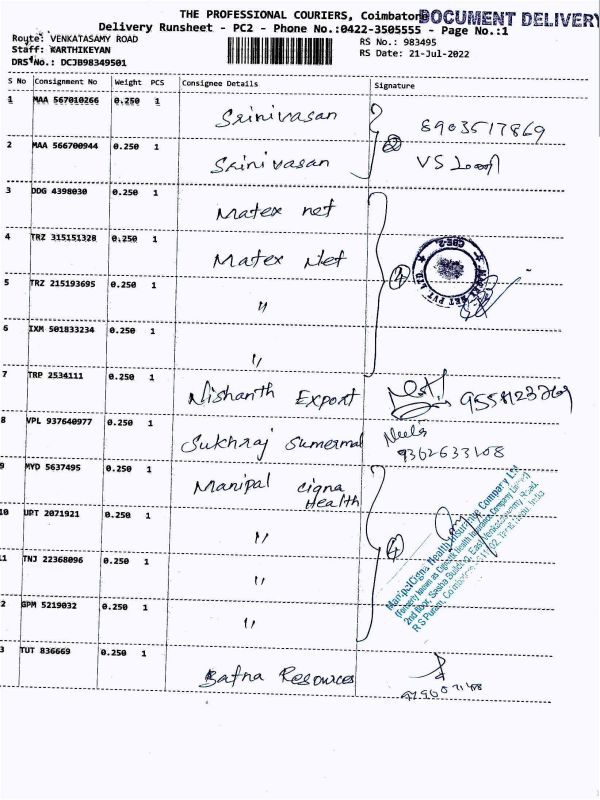 THE PROFESSIONAL COURIERS, Coimbatore
DOCUMENT DELIVERY
Delivery Runsheet - PC2 - Phone No.:0422-3505555 - Page No.:1
Route: VENKATASAMY ROAD
RS No.: 983495
Staff: KARTHIKEYAN
RS Date: 21-Jul-2022
DRS No.: DCJB98349501
S No Consignment No Weight PCS Consignee Details Signature
1 MAA 567010266 0.250 1 Srinivasan 8903517869
2 MAA 566700944 0.250 1 Srinivasan
2
3 DDG 4398030 0.250 1 Matex net
4 TRZ 315151328 0.250 1 Matex Net
4
CBE-2
5 TRZ 215193695 0.250 1 "
6 IXM 501833234 0.250 1 "
7 TRP 2534111 0.250 1 Nishanth Export
8 VPL 937640977 0.250 1 Sukhraj Sumermal
9362633108
9 MYD 5637495 0.250 1 Manipal cigna Health
4
ManipalCigna Health Insurance Company Ltd
(Formerly known as CignaTTK Health Insurance Company Limited)
2nd floor, Building, East Venkatasamy Road,
R S Puram, Coimbatore Tamil Nadu, India
10 UPT 2071921 0.250 1 "
11 TNJ 22368096 0.250 1 "
2 GPM 5219032 0.250 1 "
3 TUT 836669 0.250 1 Bafna Resources